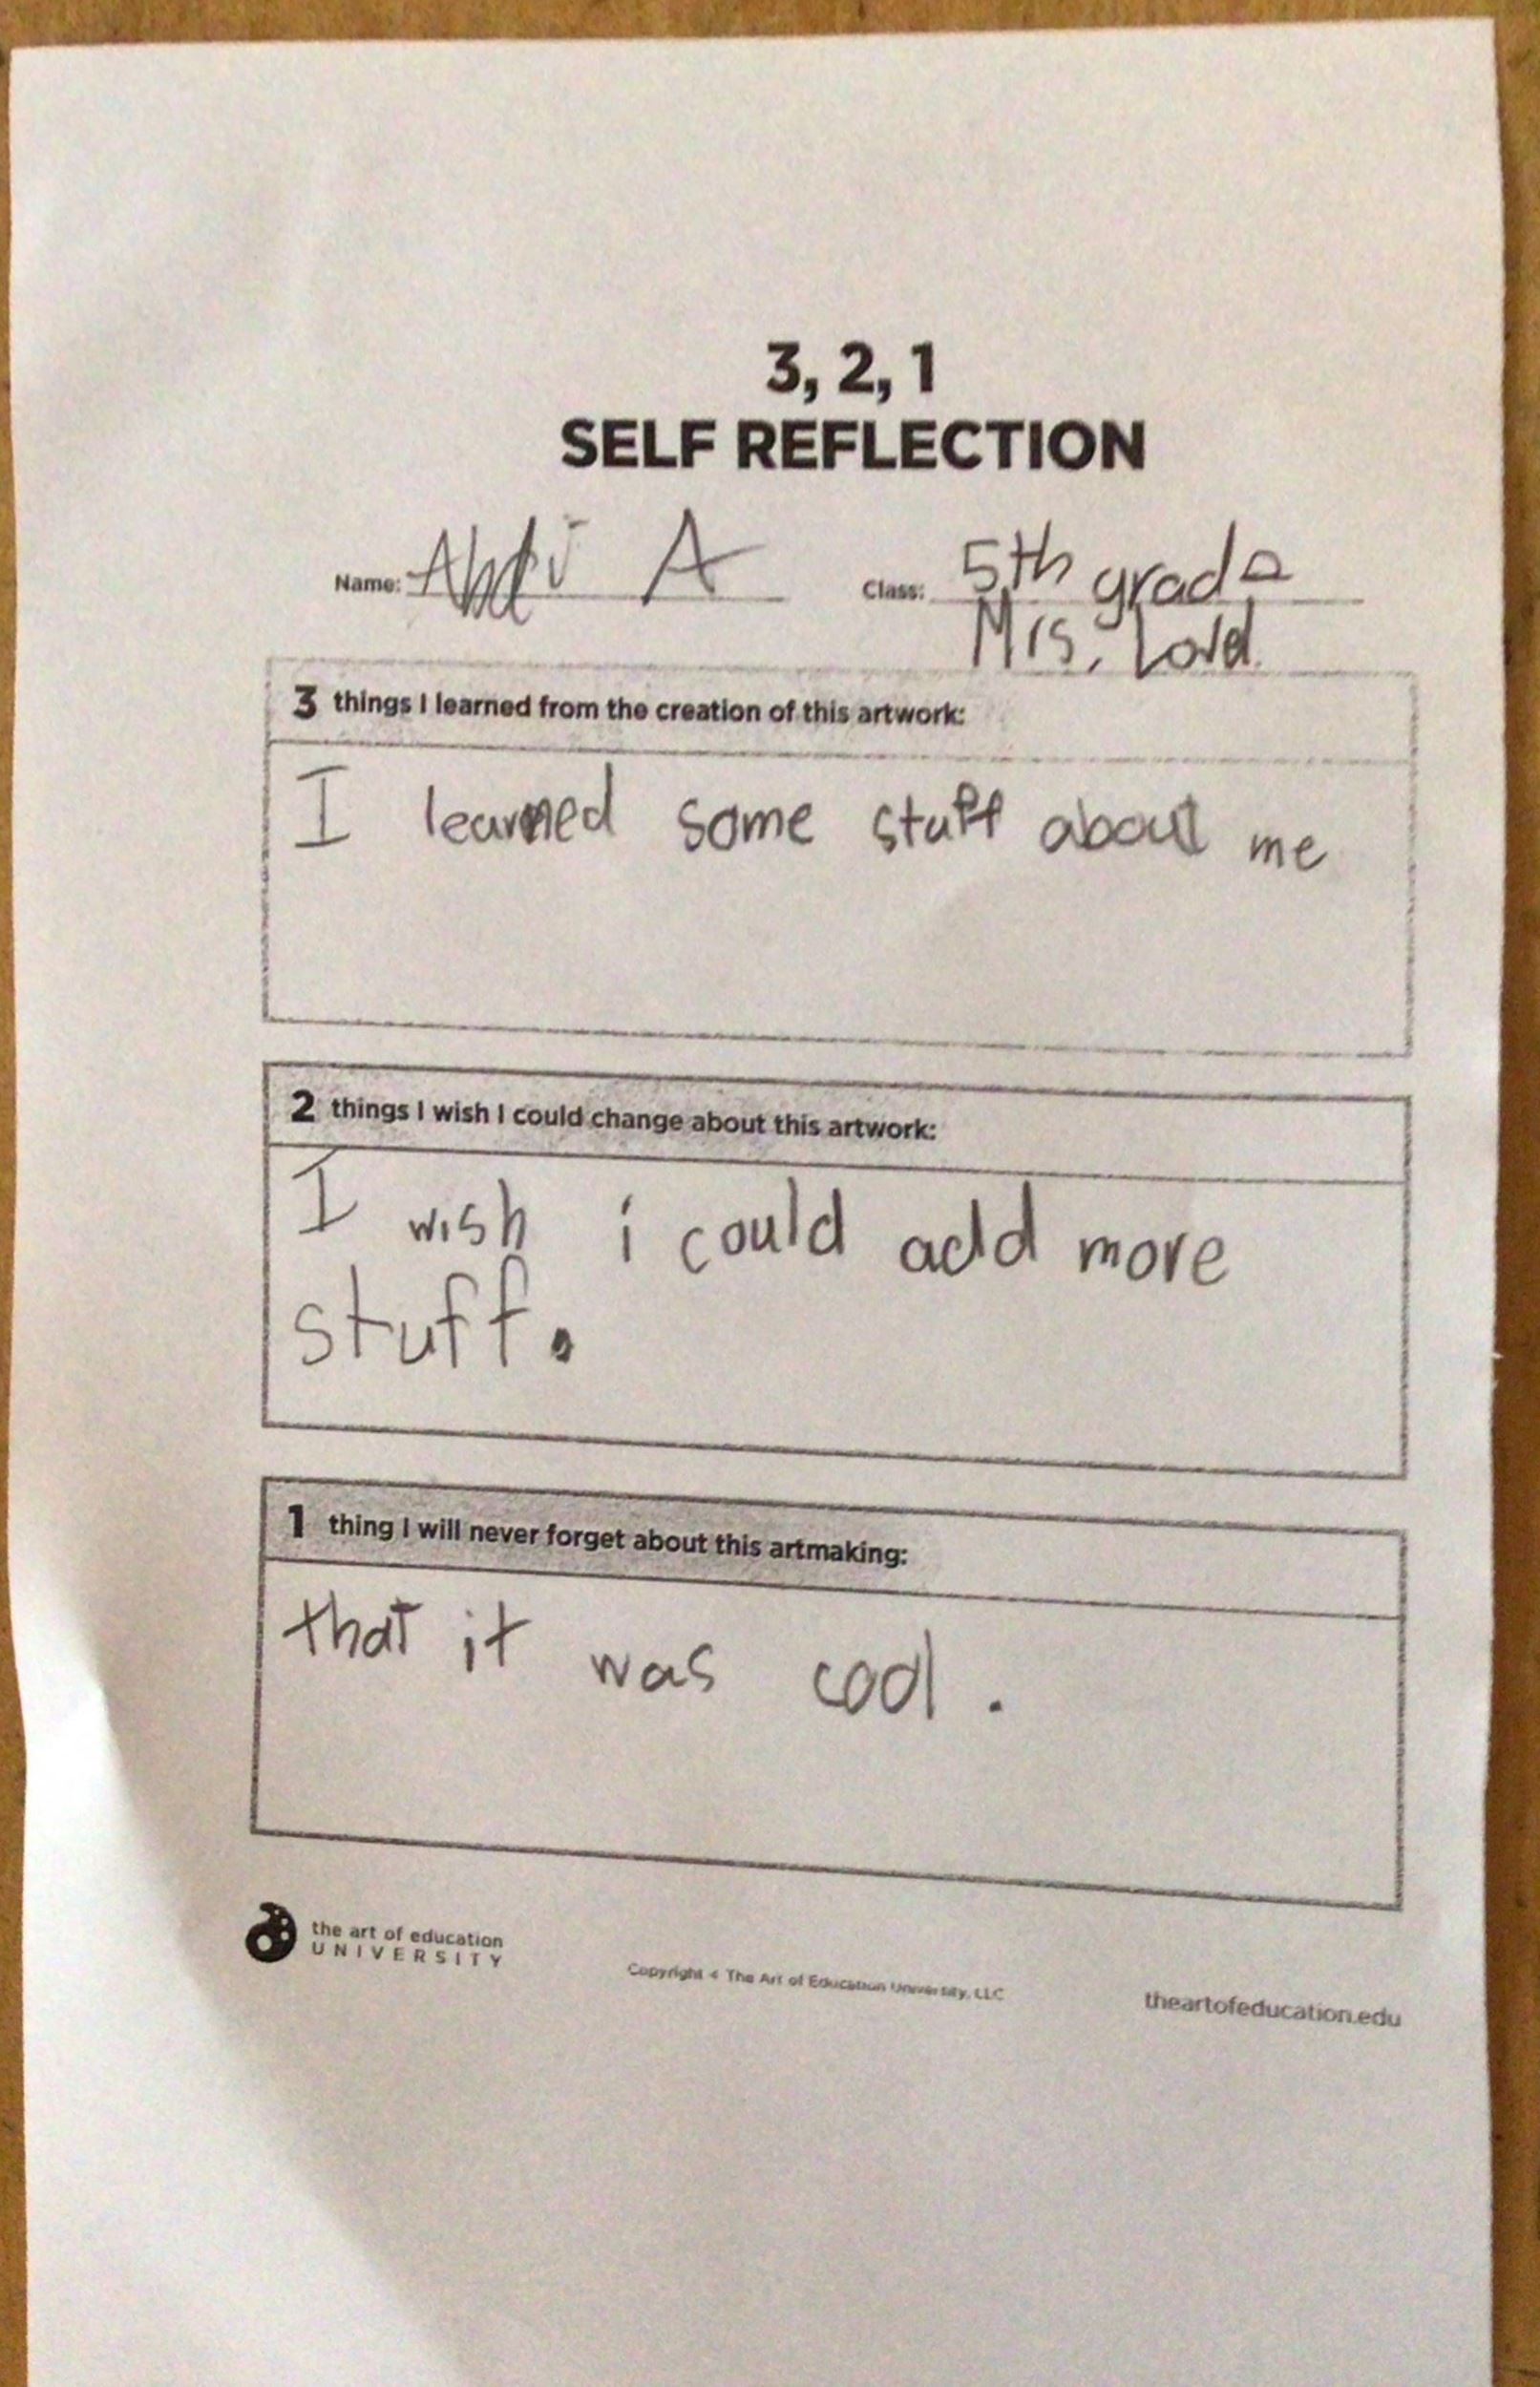 3, 2, 1
SELF REFLECTION
Name: A Class: 5th grade
Mrs. Lord
3 things I learned from the creation of this artwork:
I learned some stuff about me
2 things I wish I could change about this artwork:
I wish i could add more
stuff.
1 thing I will never forget about this artmaking:
that it was cool.
the art of education
UNIVERSITY
Copyright The Art of Education University, LLC
theartofeducation.edu